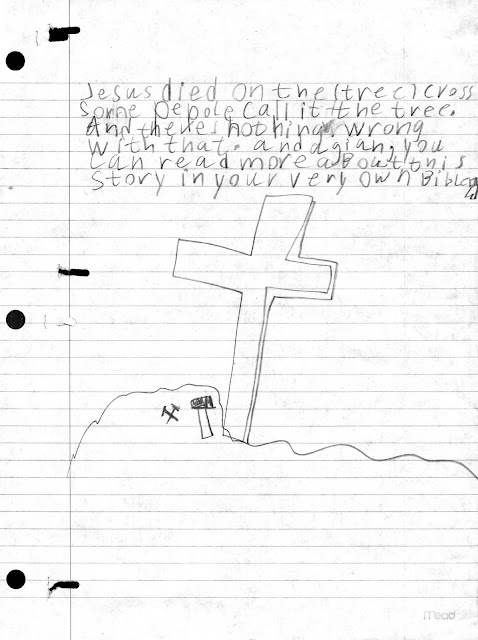 Jesus died on the (tree) cross
Some pepole call it the tree.
And theres nothing wrong
with that. and agian, you
can read more about this
Story in your very own Bible
Mead